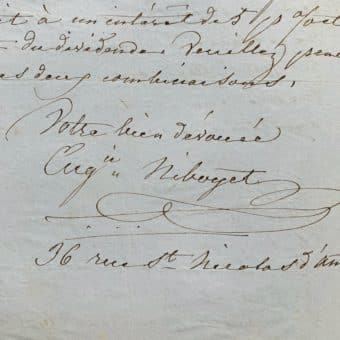 it à un intérêt de 5 p %
du dividende. Veuillez
es deux combinaisons.
Votre bien dévouée
Eugie Niboyet
36 rue St Nicolas d'An